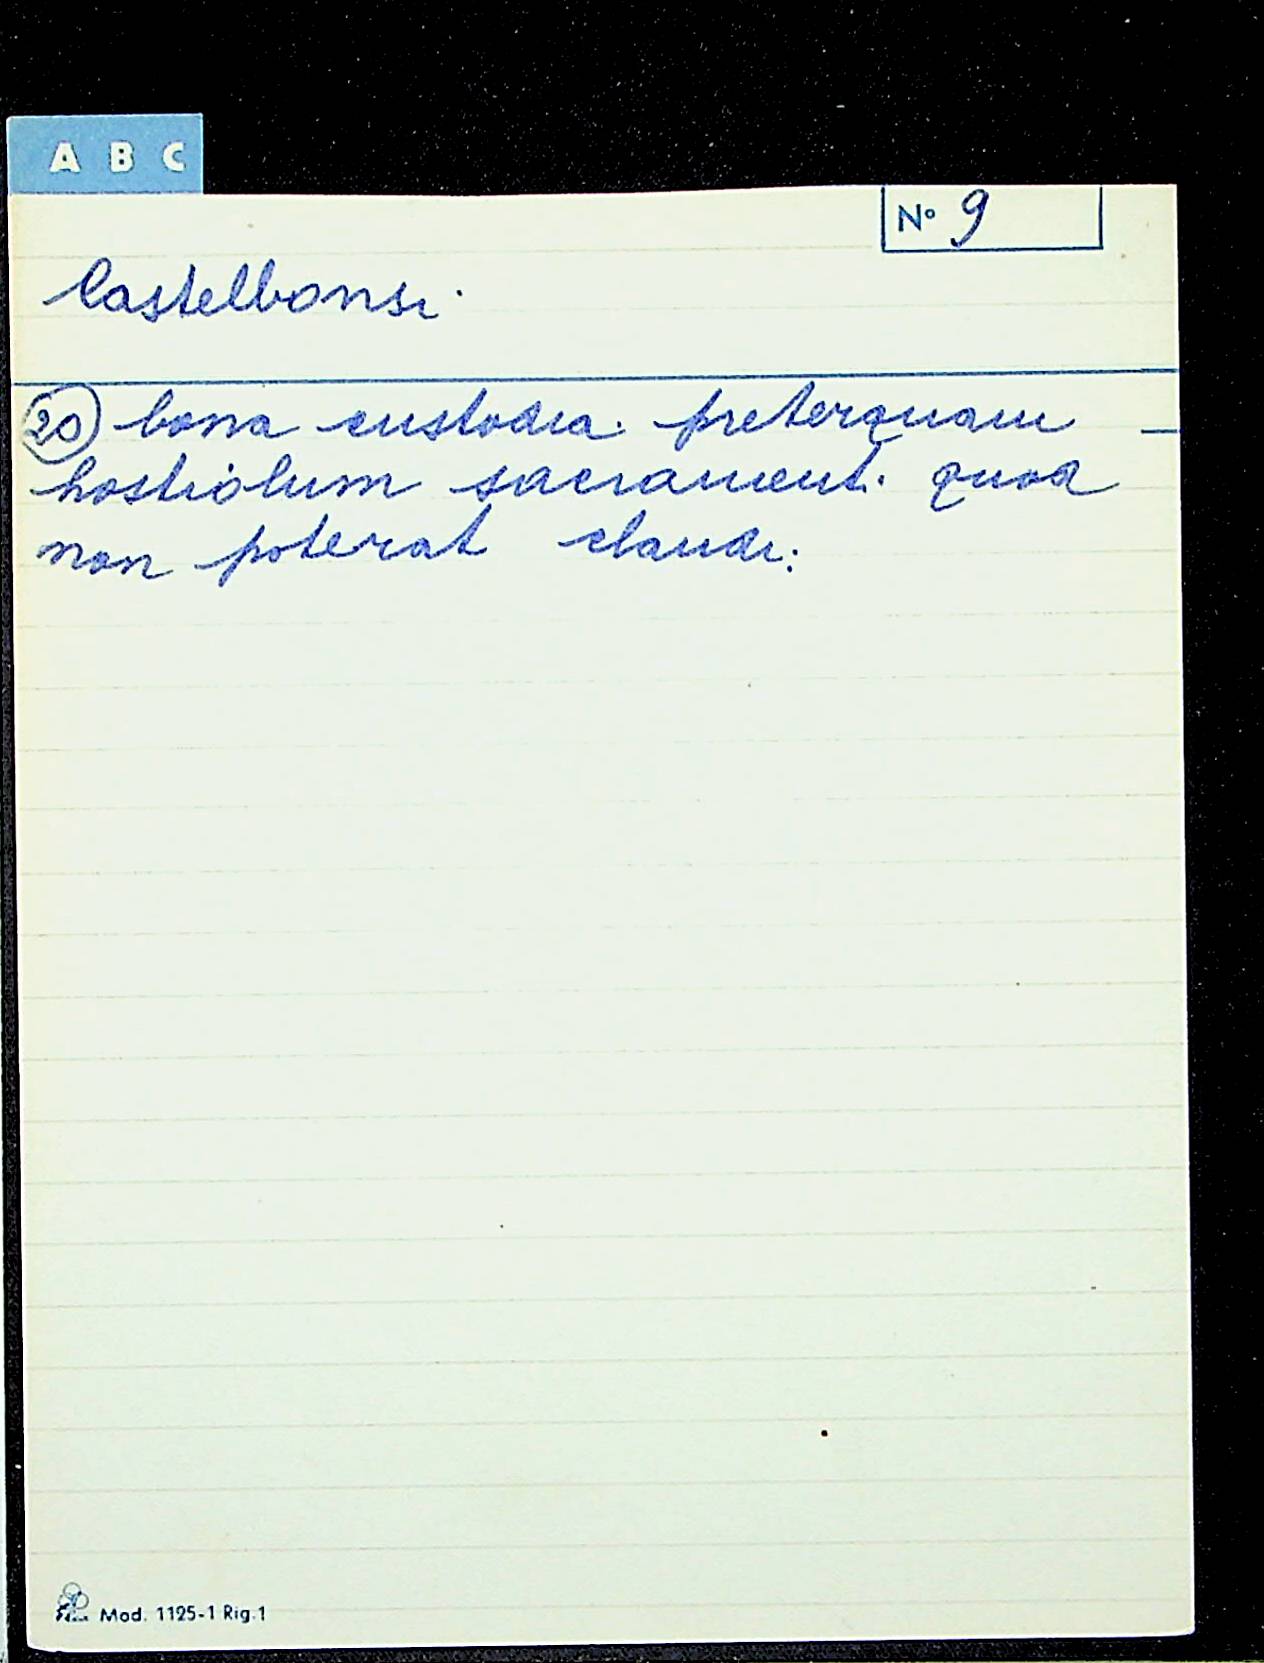 A B C
N° 9
Castelbonsi.
20 bona custodia. preterquam
hostiolum sacrament. quod
non poterat claudi.
Mod. 1125-1 Rig.1